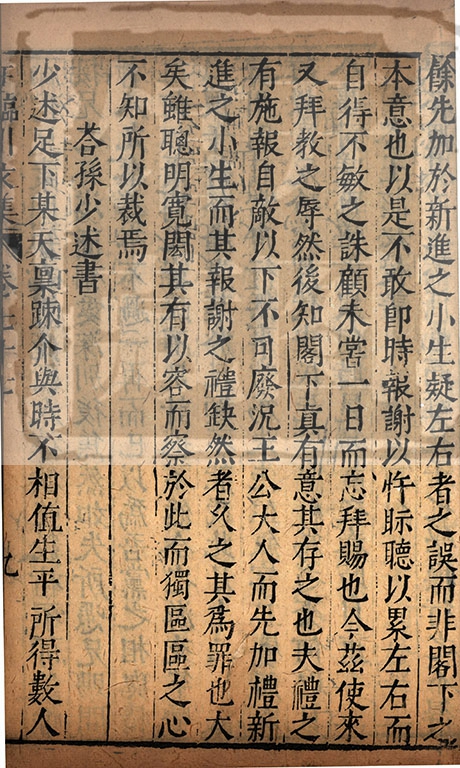 餘先加於新進之小生疑左右者之誤而非閣下之
本意也以是不敢卽時報謝以忤眎聽以累左右而
自得不敏之誅顧未嘗一日而忘拜賜也今茲使來
又拜教之辱然後知閣下真有意其存之也夫禮之
有施報自敵以下不可廢況王公大人而先加禮新
進之小生而其報謝之禮缺然者久之其爲罪也大
矣雖聰明寬閎其有以容而察於此而獨區區之心
不知所以裁焉
荅孫少述書
少述足下某天稟踈介與時不相值生平所得數人
臨川文集
九